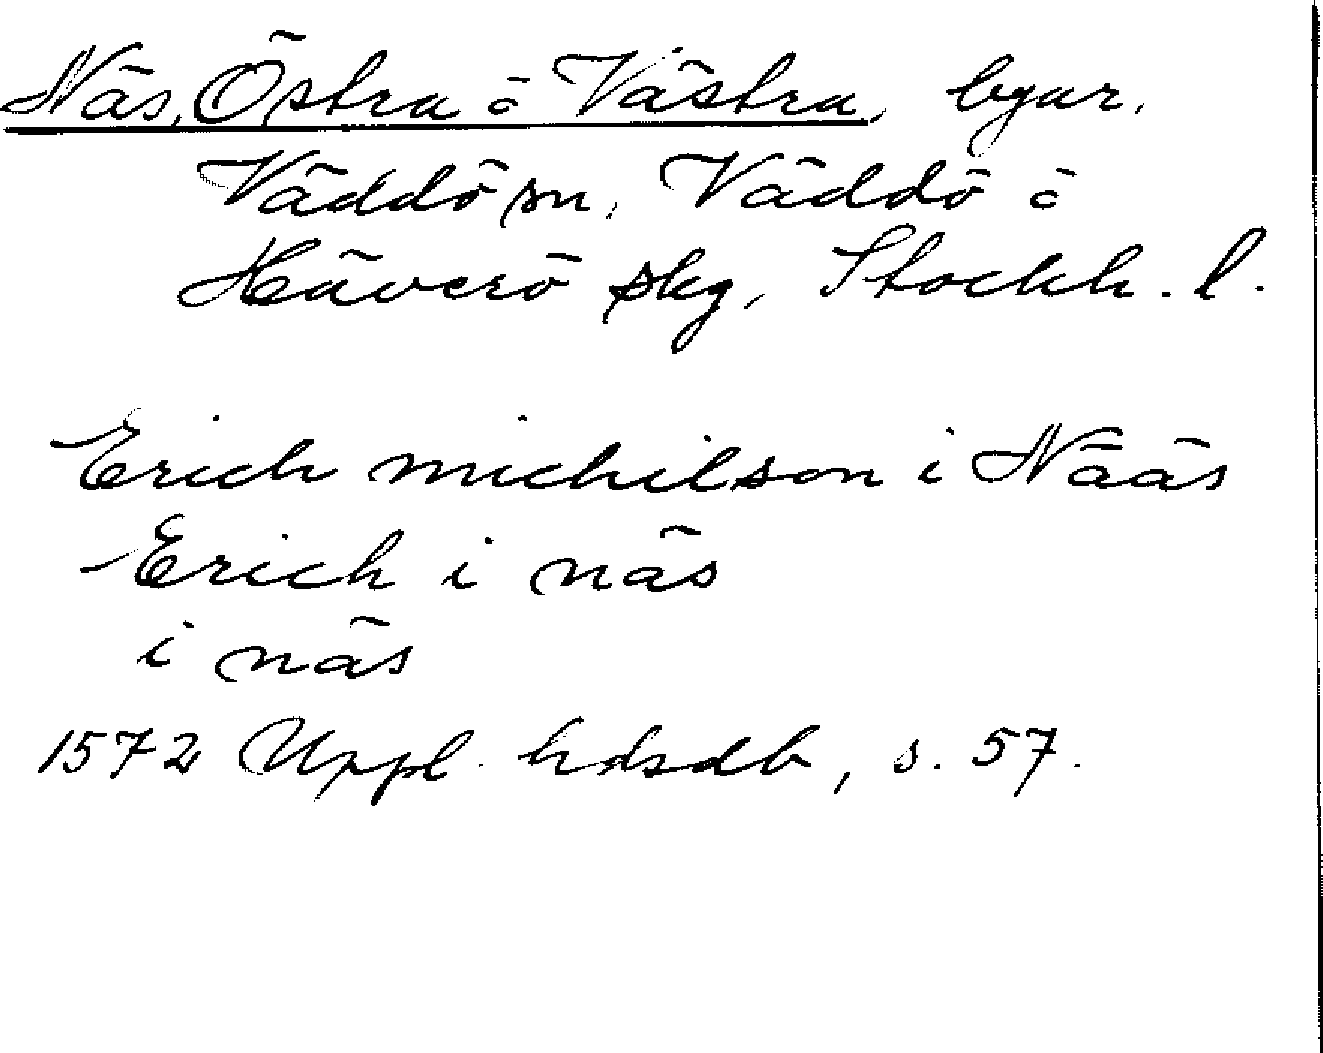 Näs, Östra o Västra, byar,
Väddö sn, Väddö o
Häverö skg, Stockh. l.
Erich michilson i Nääs
Erich i näs
i näs
1572 Uppl. hdsdb, s. 57.